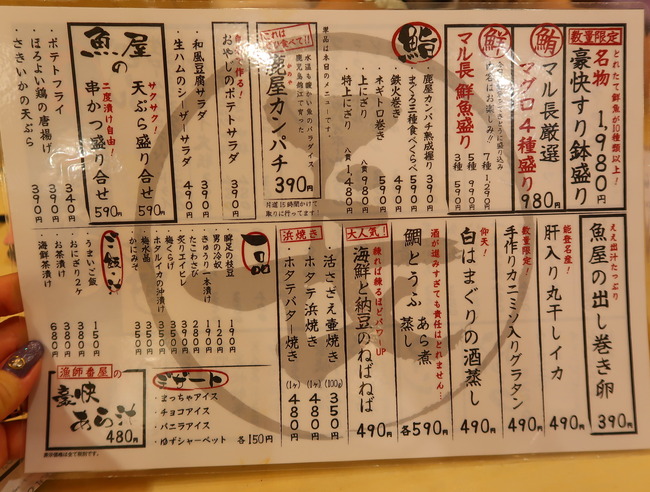 数量限定
とれたて鮮魚が10種類以上!
名物
豪快すり鉢盛り
1,980円
鮪
マル長厳選
マグロ4種盛り
980円
鮮
内容はお楽しみ!!
マル長 鮮魚盛り
7種 1,290円
5種 990円
3種 590円
鮨
・鹿屋カンパチ熟成握り 390円
・まぐろ三種食べくらべ 590円
・鉄火巻き 490円
・ネギトロ巻き 490円
・上にぎり 八貫 980円
・特上にぎり 八貫 1,480円
単品は本日のメニューです。
これは
食べて!!
水温も暖かい魚のパラダイス、
鹿児島錦江で育った
かのや
鹿屋カンパチ
390円
片道15時間かけて
取りに行ってます!
で作る!
おやじのポテトサラダ
390円
・和風豆腐サラダ 490円
・生ハムのシーザーサラダ 490円
魚屋の
サクサク!
天ぷら盛り合せ 590円
二度漬け自由!
串かつ盛り合せ 590円
・ポテトフライ 340円
・ほろよい鶏の唐揚げ 390円
・さきいかの天ぷら 390円
ええ出汁たっぷり
魚屋の出し巻き卵
390円
能登名産!
肝入り丸干しイカ
490円
数量限定!
手作りカニミソ入りグラタン
490円
仰天!
白はまぐりの酒蒸し
490円
酒が進みすぎても責任はとれません…
鯛とうふ
あら煮
蒸し
各590円
大人気!
練れば練るほどパワーUP
海鮮と納豆のねばねば
490円
浜焼き
・活さざえ壺焼き (100g) 350円
・ホタテ浜焼き (1ヶ) 480円
・ホタテバター焼き (1ヶ) 480円
一品
・瞬足の枝豆 190円
・男の冷奴 190円
・きゅうり一本漬け 120円
・たこわさび 280円
・炙りエイヒレ 390円
・ホタルイカの沖漬け 350円
・梅くらげ 350円
・梅水晶 350円
・かにみそ 350円
ご飯
・うまいご飯 150円
・おにぎり2ヶ 380円
・お茶漬け 380円
・海鮮茶漬け 680円
デザート
・まっちゃアイス
・チョコアイス
・バニラアイス
・ゆずシャーベット 各150円
漁師番屋の
豪快あら汁
480円
表示価格は全て税別です。